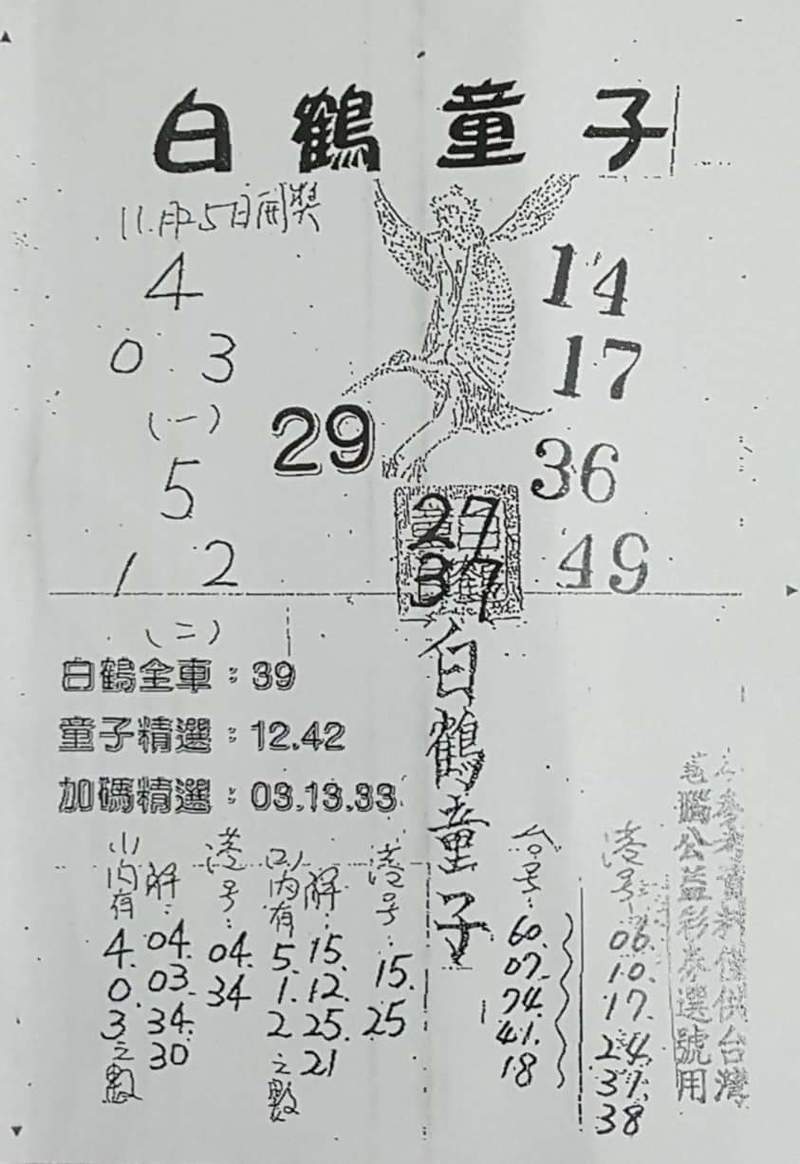 白鶴童子
11月25日開獎
4
0 3
(一)
5
1 2
(二)
29
14
17
36
49
27
37
白鶴全車：39
童子精選：12.42
加碼精選：03.13.33
白鶴童子
(一)內有
4.
0.
3之數
解：
04.
03.
34.
30
港号：
04.
34
(二)內有
5.
1.
2之數
解：
15.
12.
25.
21
港号：
15.
25
台号：
60.
07.
74.
41.
18
港号：
06.
10.
17.
24.
37.
38
參考資料僅供台灣
電腦公益彩券選號用